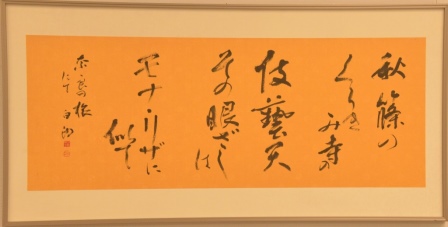 秋篠の
くらき
み寺の
伎藝天
その眼ざしは
モナ・リザに
似て